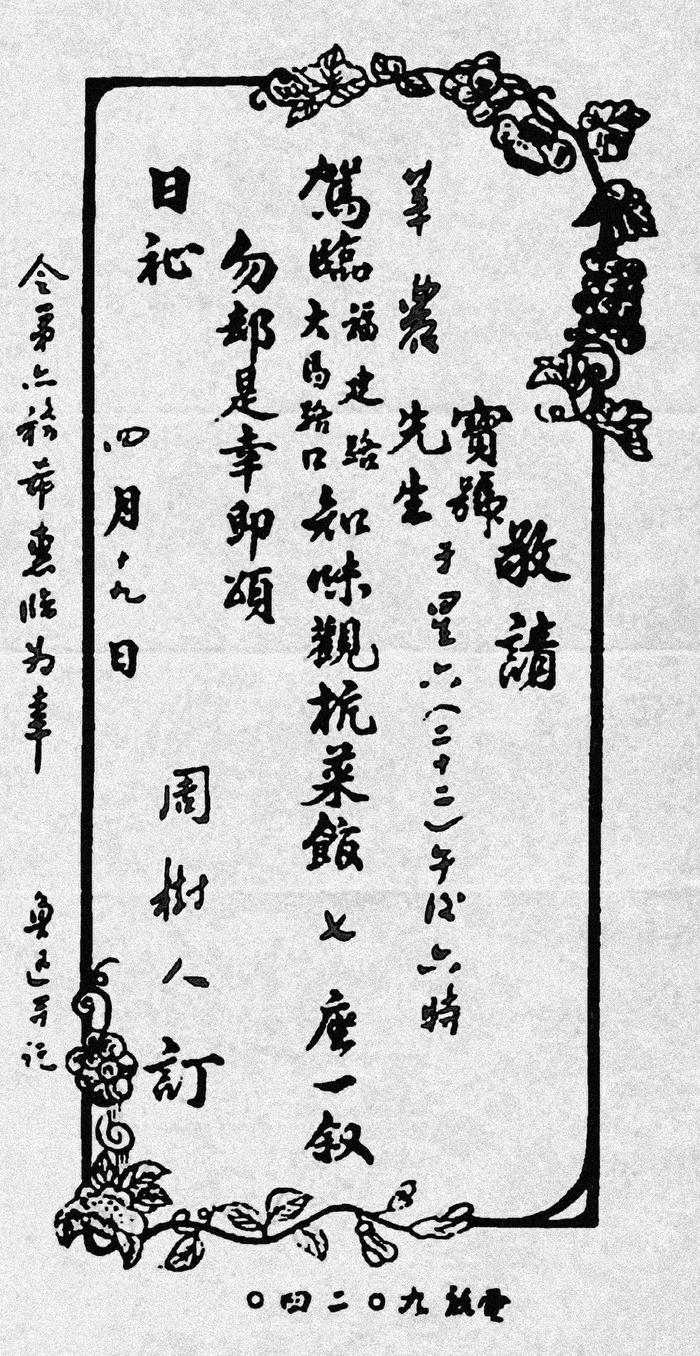 敬請
寶號
莘農先生
于星六（二十二）午後六時
駕臨福建路
大馬路口知味觀杭菜館七座一叙
勿却是幸即頌
日祉
四月十九日
周樹人訂
令弟亦務希惠臨为幸
魯迅并託
電話九〇二四〇